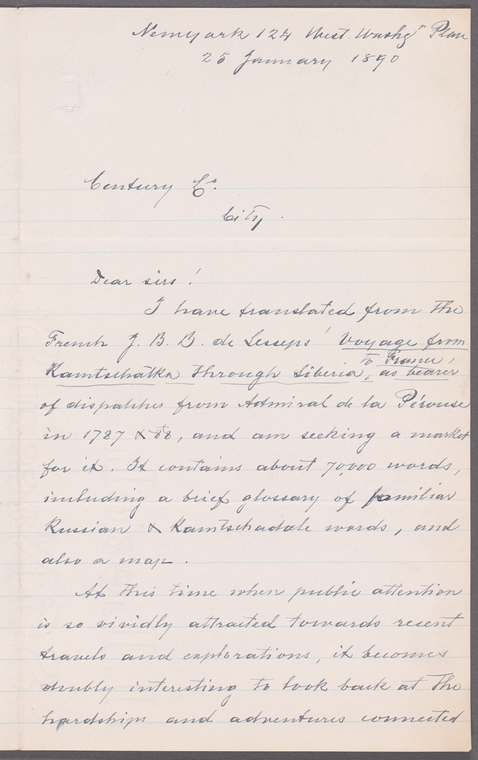 Newyork 124 West. Washg Place
25 January 1890
Century Co.
City.
Dear sirs!
I have translated from the
French J. B. B. de Lesseps' Voyage from
to France,
Kamtschatka through Siberia, as bearer
of dispatches from Admiral de la Pérouse
in 1787 & 88, and am seeking a market
for it. It contains about 70,000 words,
including a brief glossary of familiar
Russian & Kamtschadale words, and
also a map.
At this time when public attention
is so vividly attracted towards recent
travels and explorations, it becomes
doubly interesting to look back at the
hardships and adventures connected